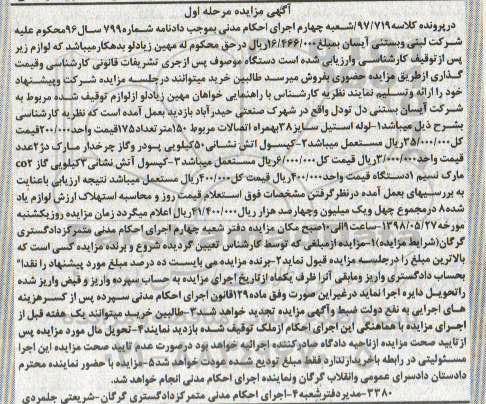 آگهی مزایده مرحله اول
درپرونده کلاسه۹۷/۷۱۹/شعبه چهارم اجرای احکام مدنی بموجب دادنامه شماره۷۹۹ سال۹۶محکوم علیه
شرکت لبنی وبستنی آیسان بمبلغ۱۶/۴۶۶/۰۰۰ریال درحق محکوم له مهین زیادلو بدهکارمیباشد که لوازم زیر
پس ازتوقیف کارشناسی وارزیابی شده است دستگاه موصوف پس ازجری تشریفات قانونی کارشناسی وقیمت
گذاری ازطریق مزایده حضوری بفروش میرسد طالبین خرید میتوانند درجلسه مزایده شرکت وپیشنهاد
خود را ارائه وتسلیم نمایند نظریه کارشناس با راهنمایی خواهان مهین زیادلو ازلوازم توقیف شده مربوط به
شرکت آیسان بستنی دل تودل واقع در شهرک صنعتی حیدرآباد بازدید بعمل آمده است که نظریه کارشناسی
بشرح ذیل میباشد۱-لوله استیل سایز۳۸بهمراه اتصالات مربوط ۱۵۰متر تعداد۱۷۵قیمت واحد۲۰۰/۰۰۰قیمت
کل۳۵/۰۰۰/۰۰۰ریال مستعمل میباشد۲-کپسول آتش نشانی ۵۰کیلویی پودر وگاز چرخدار مارک دژ۲عدد
قیمت واحد۳/۰۰۰/۰۰۰ریال قیمت کل۶/۰۰۰/۰۰۰ریال مستعمل میباشد۳-کپسول آتش نشانی۳کیلویی گاز co2
مارک نسیم ۱دستگاه قیمت واحد۴۰۰/۰۰۰ریال قیمت کل۴۰۰/۰۰۰ریال مستعمل میباشد نتیجه ارزیابی باعنایت
به بررسیهای بعمل آمده درنظرگرفتن مشخصات فوق استعلام قیمت روز و محاسبه استهلاک ارزش لوازم یاد
شده۸ درمجموع چهل ویک میلیون وچهارصد هزار ریال۴۱/۴۰۰/۰۰۰ریال اعلام میگردد زمان مزایده روزیکشنبه
مورخه۱۳۹۸/۰۵/۲۷-ساعت۹الی۱۰صبح مکان مزایده دفتر شعبه چهارم اجرای احکام مدنی متمرکزدادگستری
گرگان(شرایط مزایده)۱-مزایده ازمبلغی که توسط کارشناس تعیین گردیده شروع و برنده مزایده کسی است که
بالاترین مبلغ را درجلسه مزایده قبول نماید۲-برنده مزایده می بایست ده درصد مبلغ مورد پیشنهاد را نقدا"
بحساب دادگستری واریز ومابقی آنرا ظرف یکماه ازتاریخ اجرای مزایده به حساب سپرده واریز و قبض واریز شده
راتحویل دایره اجرا نماید درغیراین صورت وفق ماده۱۲۹قانون اجرای احکام مدنی سپرده پس از کسرهزینه
های اجرایی به نفع دولت ضبط وآگهی مزایده تجدید خواهد شد۳-طالبین خرید میتوانند یک هفته قبل از
اجرای مزایده با هماهنگی این اجرای احکام ازملک توقیف شده بازدید نمایند۴-تحویل مال مورد مزایده پس
ازتایید صحت مزایده ازناحیه دادگاه صادرکننده اجرائیه خواهد بود درصورت عدم تایید صحت مزایده این اجرا
مسئولیتی در رابطه باخریدارندارد فقط مبلغ تودیع شده عودت خواهد شد۵-مزایده با حضور نماینده محترم
دادستان دادسرای عمومی وانقلاب گرگان ونماینده اجرای احکام مدنی انجام خواهد شد.
۳۳۸۰-مدیردفترشعبه۴-اجرای احکام مدنی متمرکزدادگستری گرگان-شریعتی جلمردی